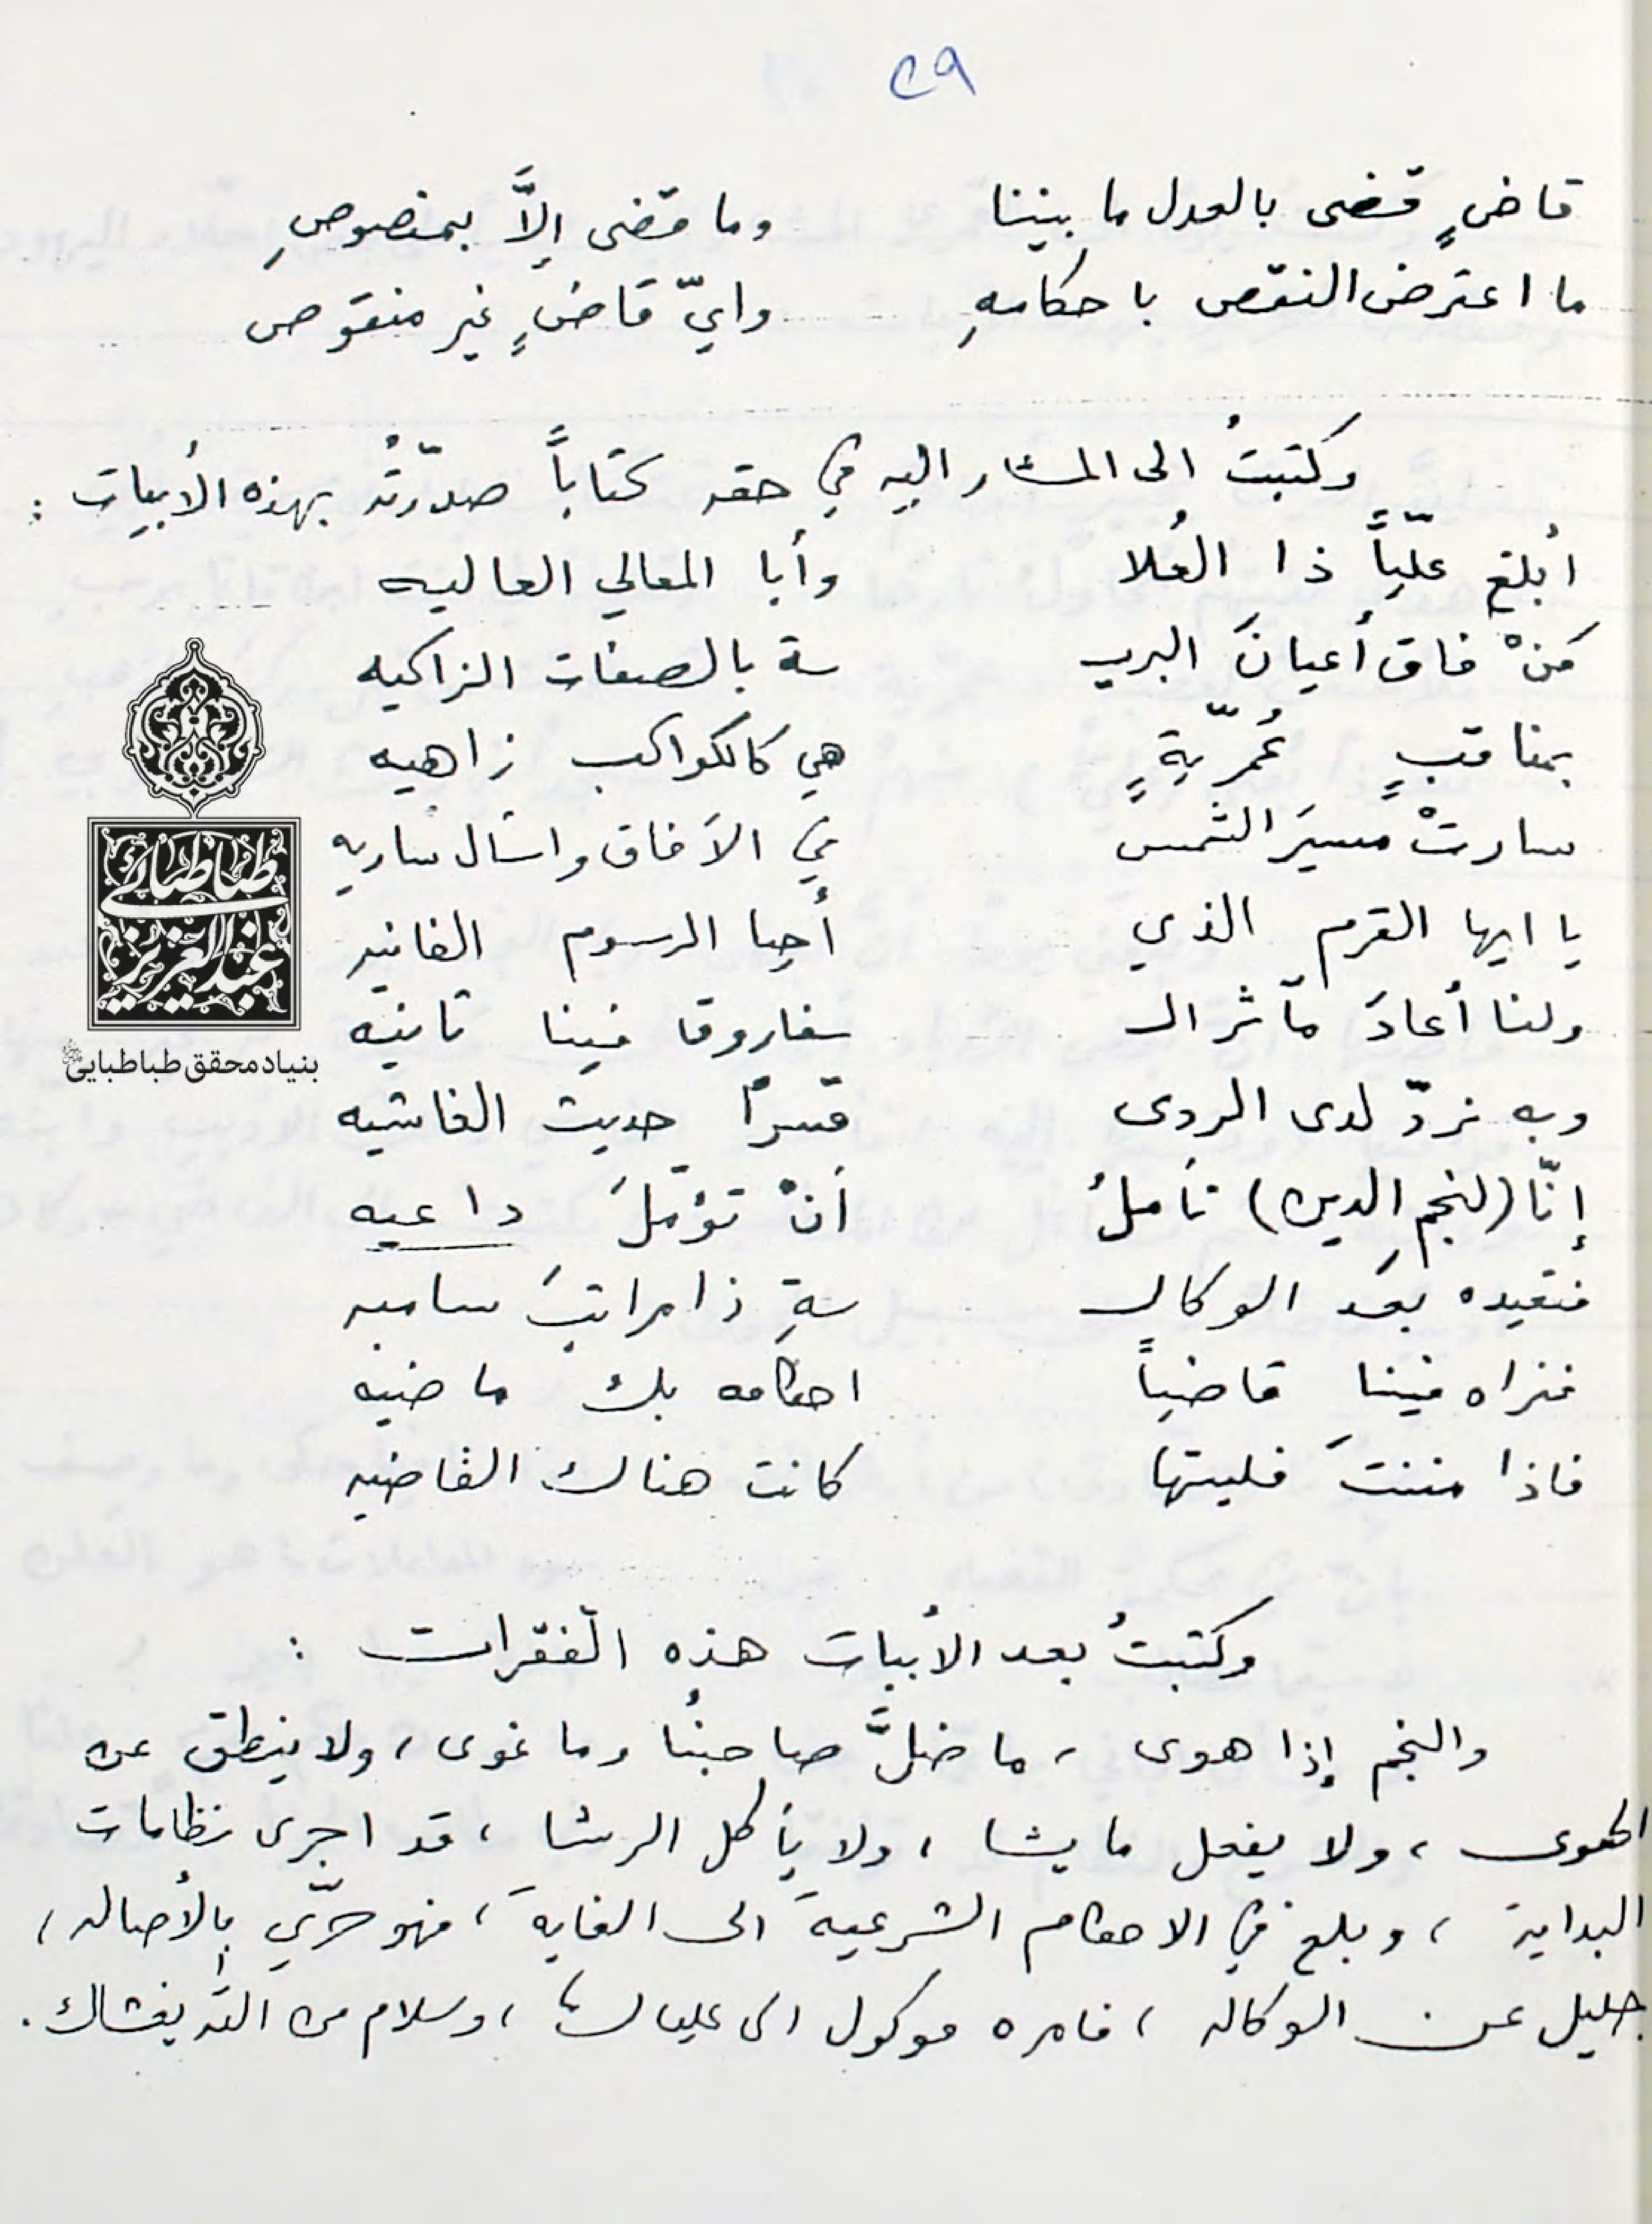 ٢٩
قاضٍ قضى بالعدل ما بيننا وما قضى إلاَّ بمنصوصِ
ما اعترض النقص باحكامهِ وايّ قاضٍ غير منقوص
وكتبتُ الى المشار اليه في حقه كتاباً صدّرتُه بهذه الأبيات :
أبلغ عليّاً ذا العُلا وأبا المعالي العاليه
مَنْ فاق أعيانَ البريـ ـة بالصفات الزاكيه
بمناقبٍ عُمرّيةٍ هي كالكواكب زاهيه
سارتْ مسيرَ الشمس في الآفاق واسأل ساريه
يا ايها القرم الذي أحيا الرسوم الفانيه
ولنا أعادَ مآثر الـ ـفاروق فينا ثانيه
وبه نردّ لدى الردى قسراً حديث الغاشيه
إنّا (لنجمِ الدين) نأملُ أنْ تؤمّلَ داعيه
فتعيده بعد الوكالـ ـةِ ذا مراتبَ ساميه
فنراه فينا قاضياً احكامه بك ماضيه
فاذا مننتَ فليتها كانت هناك القاضيه
وكتبتُ بعد الأبيات هذه الفقرات :
والنجم إذا هوى ، ما ضلَّ صاحبنُا وما غوى ، ولا ينطق عن
الهوى ، ولا يفعل ما يشا ، ولا يأكل الرشا ، قد اجرى نظامات
البداية ، وبلغ في الاحكام الشرعية الى الغاية ، فهو حرّي بالأصاله ،
جليل عن الوكاله ، فامره موكول الى ، وسلام من الله يغشاك .
طباطبائی
عبدالعزیز
بنیاد محقق طباطبایی